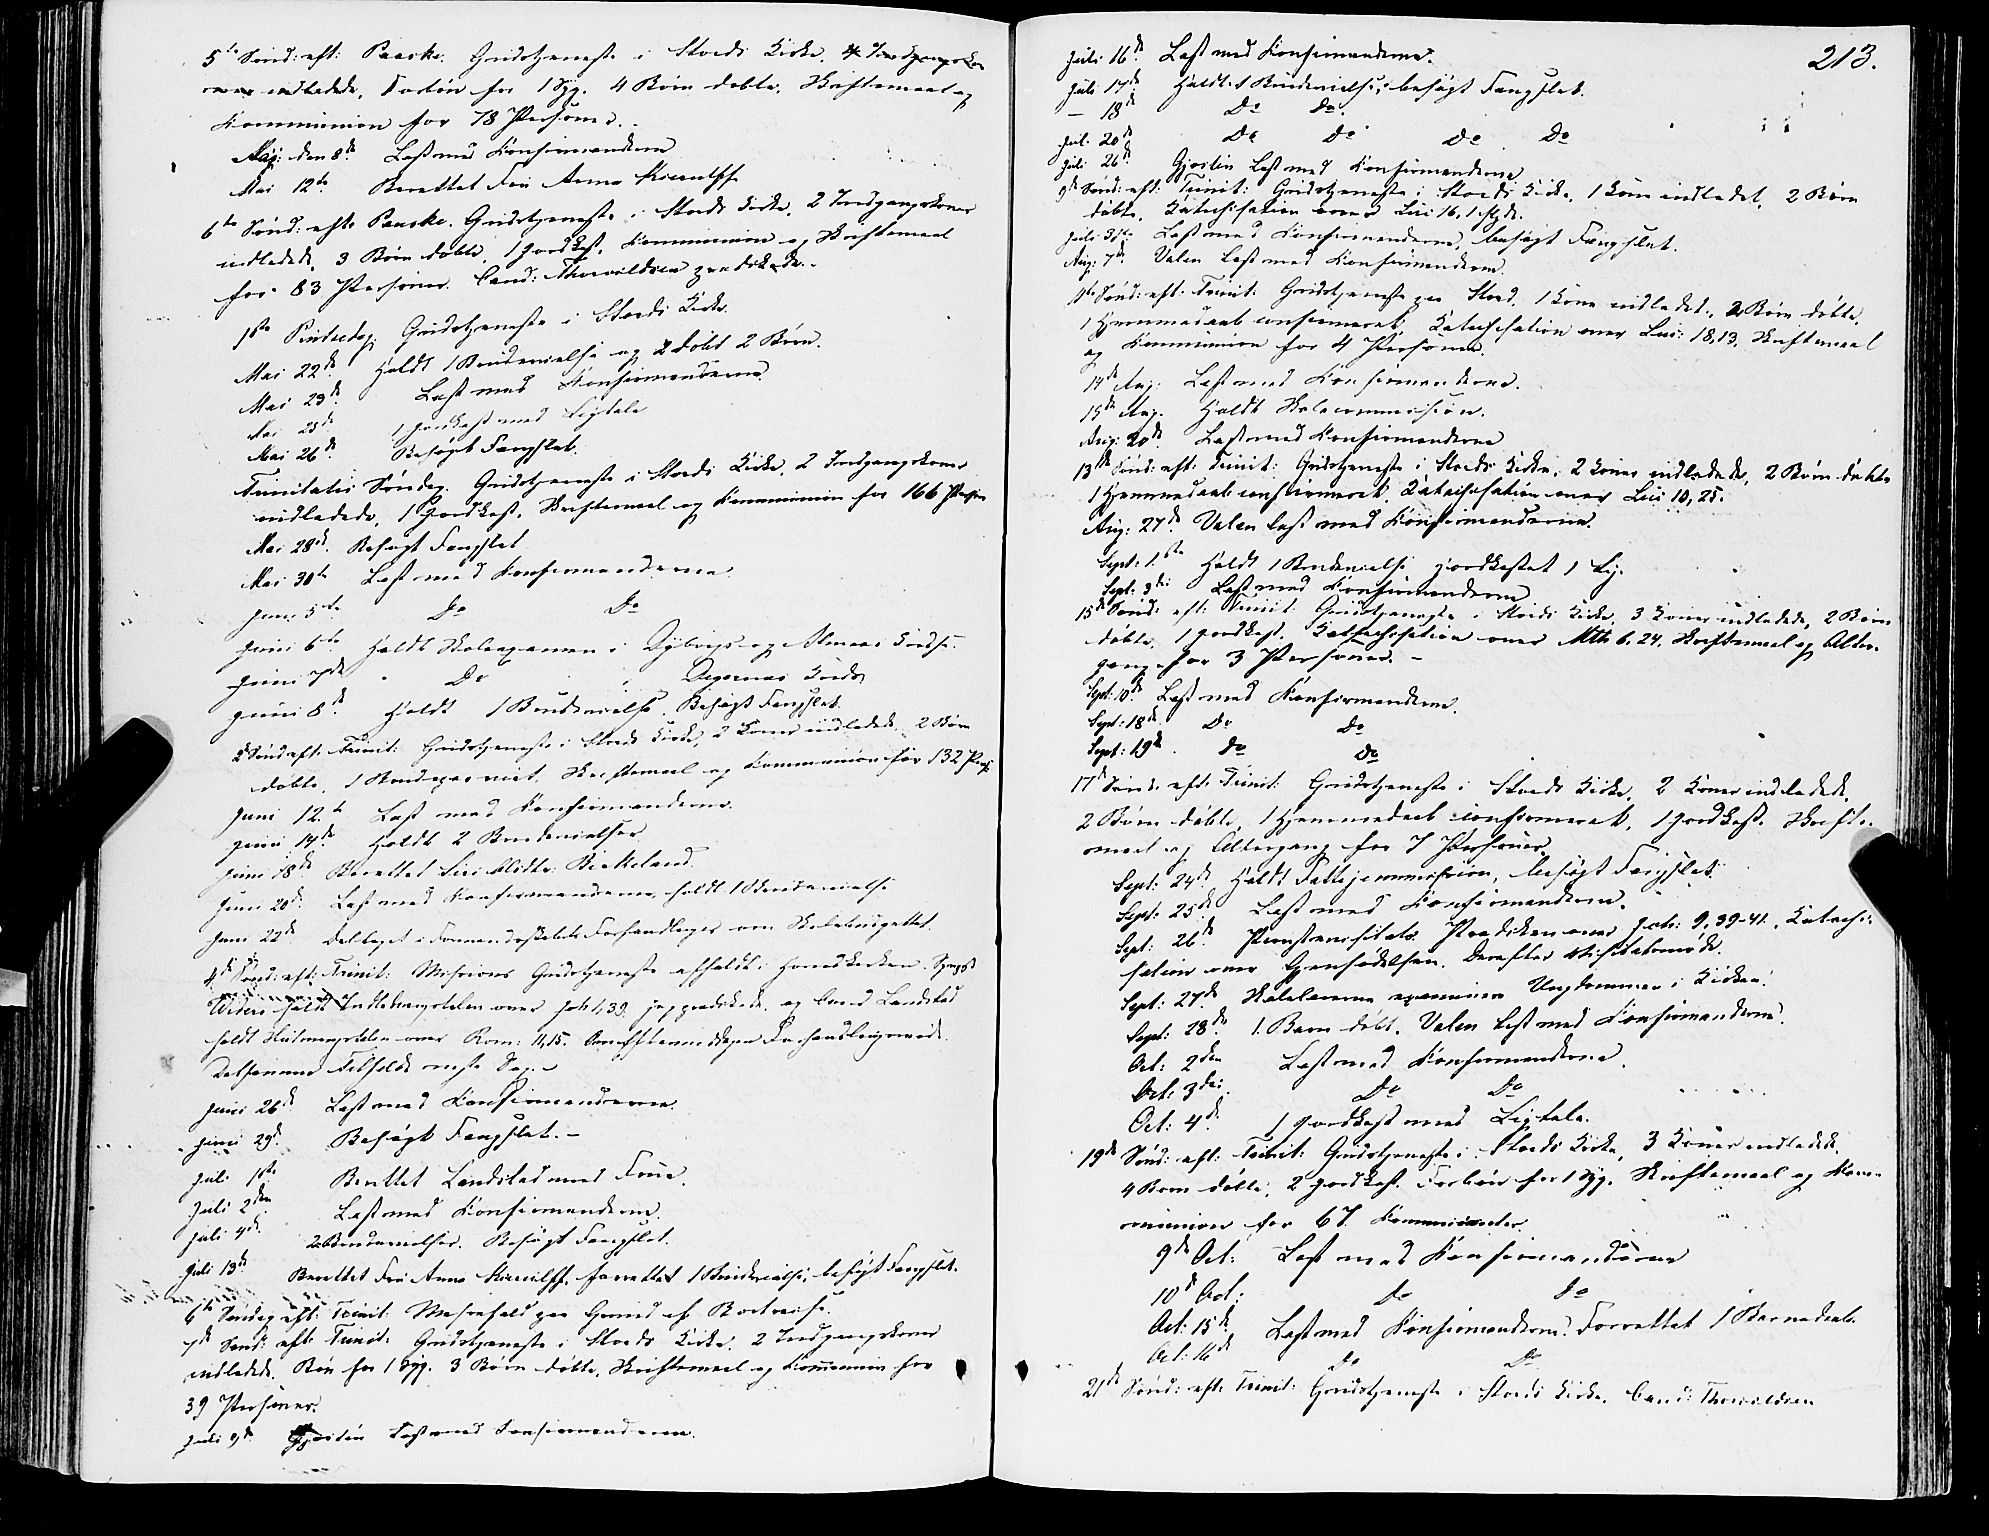 5te Sønd: eft: Paaske. Gudstjeneste i Stords Kirke. 4 Indgangsko-
ner indledede, Forbøn for 1 Syg. 4 Børn døbte. Skriftemaal og
Kommunion for 78 Personer.
Maj: den 8de Læst med Konfirmanderne
Mai 12te Berettet Fru Anna
6te Sønd: efte Paaske. Gudstjeneste i Stords Kirke, 2 Indgangskoner
indledede, 3 Børn døbte, 1 Jordkast, Kommunion og Skriftemaal
for 83 Personer. Cand: Thorvaldsen prædikede.
1ste Pintsedag. Gudstjeneste i Stords Kirke.
Mai 22de Holdt 1 Brudevielse og døbt 2 Børn.
Mai 23de Læst med Konfirmanderne.
Mai 25de 1 Jordkast med Ligtale
Mai 26de Besøgt Fængslet.
Trinitatis Søndag. Gudstjeneste i Stords Kirke, 2 Indgangskoner
indledede, 1 Jordkast, Skriftemaal og Kommunion for 166 Person
Mai 28de Besøgt Fængslet
Mai 30te Læst med Konfirmanderne
Juni 5te Do Do
Juni 6te Holdt Skoleexamen i og Almaas Kreds.
Juni 7de Do Digernæs Kreds
Juni 8de Holdt 1 Brudevielse. Besøgt Fængslet.
2 Sønd eft: Trinit: Gudstjeneste i Stords Kirke, 2 Koner indledede, 2 Børn
døbte, 1 Brudepar viet, Skriftemaal og Kommunion for 132 Pers:
Juni 12te Læst med Konfirmanderne.
Juni 14de Holdt 2 Brudevielser
Juni 18de Berettet Birkeland.
Juni 20de Læst med Konfirmanderne, holdt 1 Brudevielse
Juni 22de Deltaget i Formandskabets Forhandlinger om Skolebudgettet.
4de Sønd: eft: Trinit: Missions Gudstjeneste afholdt i Hovedkirken. Sogpr
holdt Indledningstalen over Joh 1,39. jeg prædikede og Cand Landstad
holdt Slutningstalen over Rom: 11,15. Om Eftermiddagen Forhandlingsmøde.
Detsamme Tilfælde næste Dag.
Juni 26de Læst med Konfirmanderne.
Juni 29de Besøgt Fængslet.
Juli 1ste Berettet Landstad med Frue.
Juli 2den Læst med Konfirmanderne.
Juli 4de 2 Brudevielser. Besøgt Fængslet.
Juli 13de Berettet Fru Anna forrettet 1 Brudevielse, besøgt Fængslet.
6te Søndag eft: Trinit: Messefald paa Grund af Bortreise.
7de Sønd: efte Trinit: Gudstjeneste i Stords Kirke. 2 Indgangskoner
indledede, Bøn for 1 Syg. 3 Børn døbte, Skriftemaal og Kommunion for
39 Personer.
Juli 9de Læst med Konfirmanderne.
213.
Juli 16de Læst med Konfirmanderne.
Juli 17de Holdt 1 Brudevielse, besøgt Fængslet.
– 18de Do Do
Jul. 20de Do Do Do Do
Juli 26de Læst med Konfirmanderne
9de Sønd: eft: Trinit: Gudstjeneste i Stords Kirke, 1 Kone indledet, 2 Børn
døbte, Katechisation over Luc 16, 1 flgde.
Juli 31te Læst med Konfirmanderne, besøgt Fængslet.
Aug: 7de Valen læst med Konfirmanderne.
11te Sønd: eft: Trinit: Gudstjeneste paa Stord, 1 Kone indledet, 2 Børn døbte,
1 Hjemmedaab confirmeret, Katechisation over Luc: 18,13, Skriftemaal
og Kommunion for 4 Personer.
14de Aug: Læst med Konfirmanderne.
15de Aug. Holdt Skolecommission.
Aug: 20de Læst med Konfirmanderne
13de Sønd: eft: Trinit: Gudstjeneste i Stords Kirke, 2 Koner indledede, 2 Børn døbte
1 Hjemmedaab confirmeret, Katechisation over Luc 10, 25.
Aug: 27de Valen læst med Konfirmanderne.
Sept: 1ste Holdt 1 Brudevielse jordkastet 1 Lig.
Sept: 3die Læst med Konfirmanderne
15de Sønd: eft: Trinit: Gudstjeneste i Stords Kirke, 3 Koner indledede, 2 Børn
døbte, 1 Jordkast. Katechisation over Mth 6,24, Skriftemaal og Alter-
gang for 3 Personer. –
Sept: 10de Læst med Konfirmanderne.
Sept: 18de Do Do
Sept: 19de Do Do
17de Sønd. eft. Trinit: Gudstjeneste i Stords Kirke, 2 Koner indledede,
2 Børn døbte, 1 Hjemmedaab confirmeret, 1 Jordkast, Skrifte-
maal og Altergang for 7 Personer.
Sept: 24de Holdt Fattigcommission, besøgt Fængslet.
Sept: 25de Læst med Konfirmanderne.
Sept: 26de Provstevisitats. Prædiken over Joh: 9,39-41, Katechi-
sation over Gjenfødelsen. Derefter Visitatsmøde.
Sept: 27de Skolelærerne examinere Ungdommen i Kirken.
Sept: 28de 1 Barn døbt, Valen læst med Konfirmanderne.
Oct: 2den Læst med Konfirmanderne.
Oct: 3die Do Do
Oct: 4de 1 Jordkast med Ligtale.
19de Sønd: eft: Trinit: Gudstjeneste i Stords Kirke, 3 Koner indledede,
4 Børn døbte, 2 Jordkast. Forbøn for 1 Syg. Skriftemaal og Kom-
munion for 67 Kommunicanter.
9de Oct: Læst med Konfirmanderne
10de Oct: Do Do
Oct: 15de Læst med Konfirmanderne. Forrettet 1 Barnedaab.
Oct: 16de Do Do
21de Sønd: eft: Trinit: Gudstjeneste i Stords Kirke. Cand: Thorvaldsen